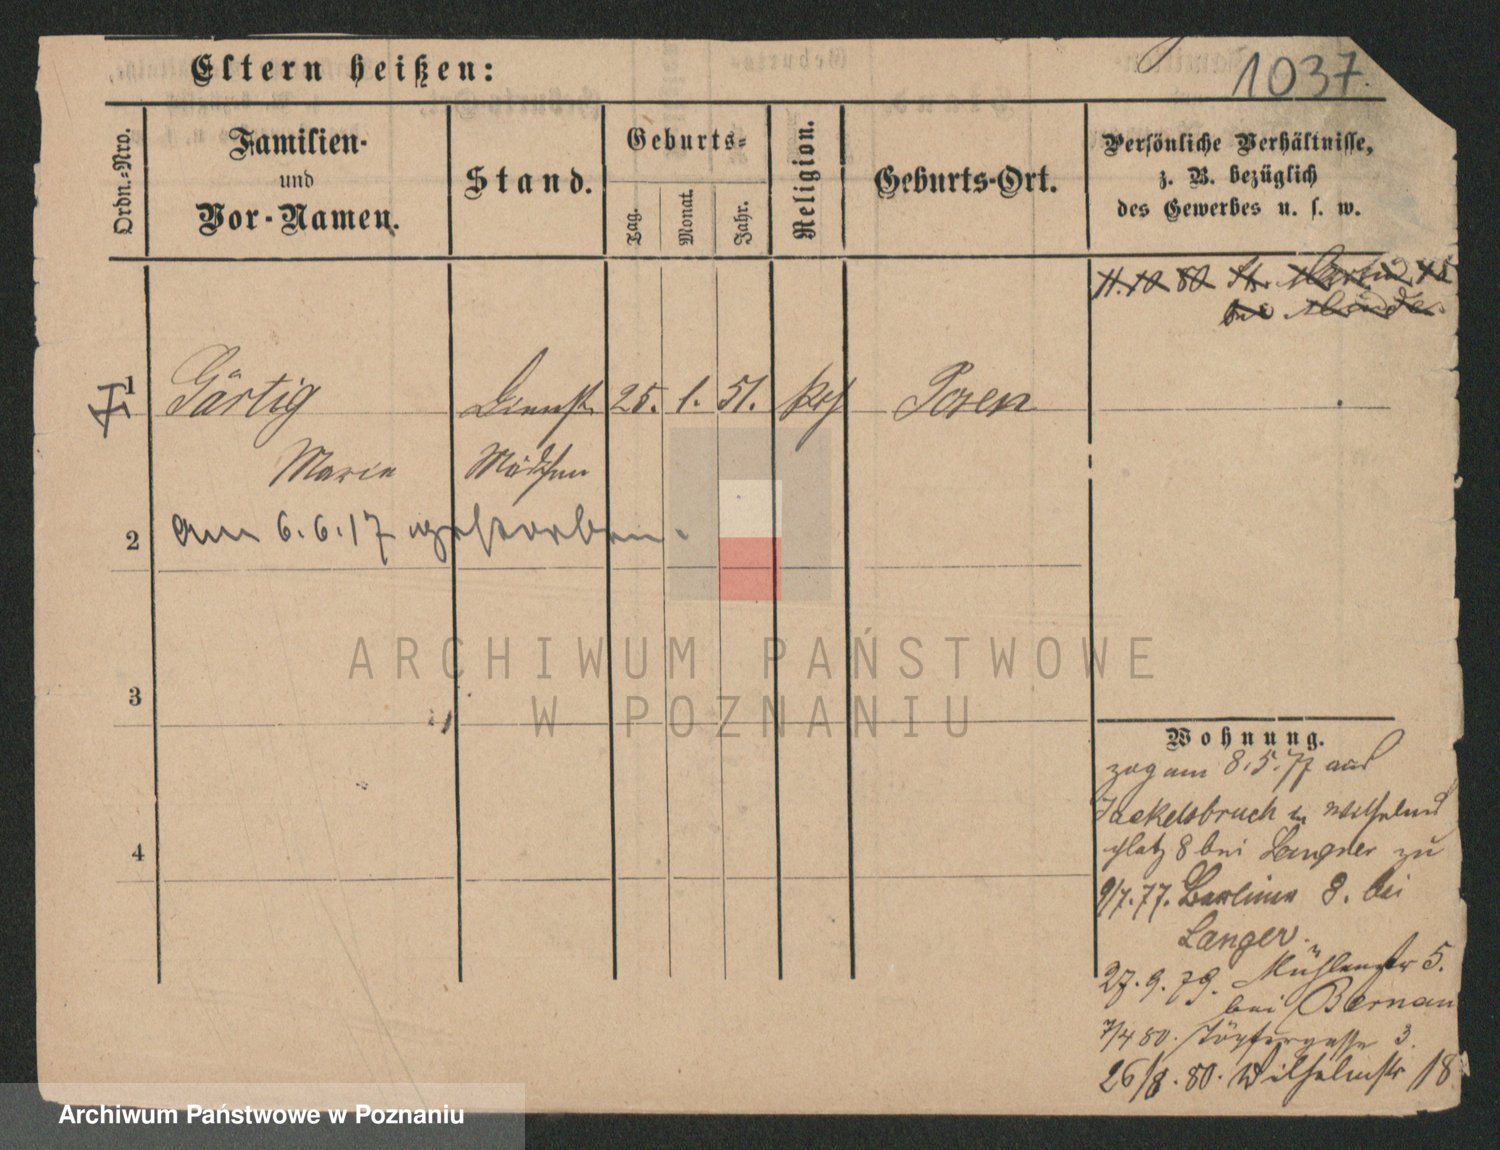 Eltern heißen:
1037.
Ordn.-Nro.
Familien-
und
Vor-Namen.
Stand.
Geburts-
Tag.
Monat.
Jahr.
Religion.
Geburts-Ort.
Persönliche Verhältnisse,
z. B. bezüglich
des Gewerbes u. s. w.
11.10 80 St. Martin
bei
1
Gärtig
Dienst
25. 1. 51.
Posen
Marie
Mädchen
2
am 6.6.17 gestorben.
3
4
Wohnung.
zog am 8.5.77 aus
Jackelsbruch in Wilhelms
platz 8 bei Langner zu
9/7.77. Berliner 8. bei
Langer.
27.9.79. Mühlenstr 5.
bei Bernau
7/4 80. Töpfergasse 3.
26/8.80. Wilhelmstr 18
ARCHIWUM PAŃSTWOWE
W POZNANIU
Archiwum Państwowe w Poznaniu